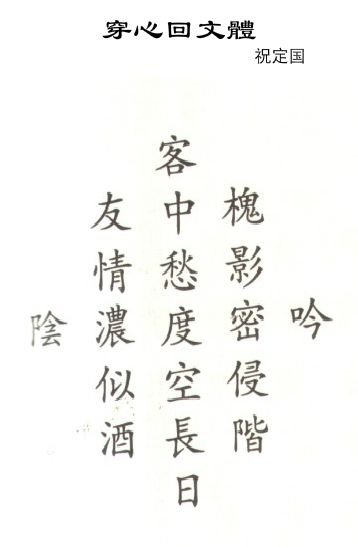 穿心回文體
祝定国
吟
槐影密侵階
客中愁度空長日
友情濃似酒
陰